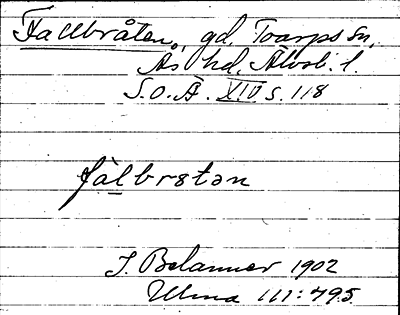 Fallbråten, gd. Toarps sn,
Ås hd. Älvsb. l.
S.O.Ä. XIV s. 118
fàlbrstən
J. Belanner 1902
Ulma 111:795.